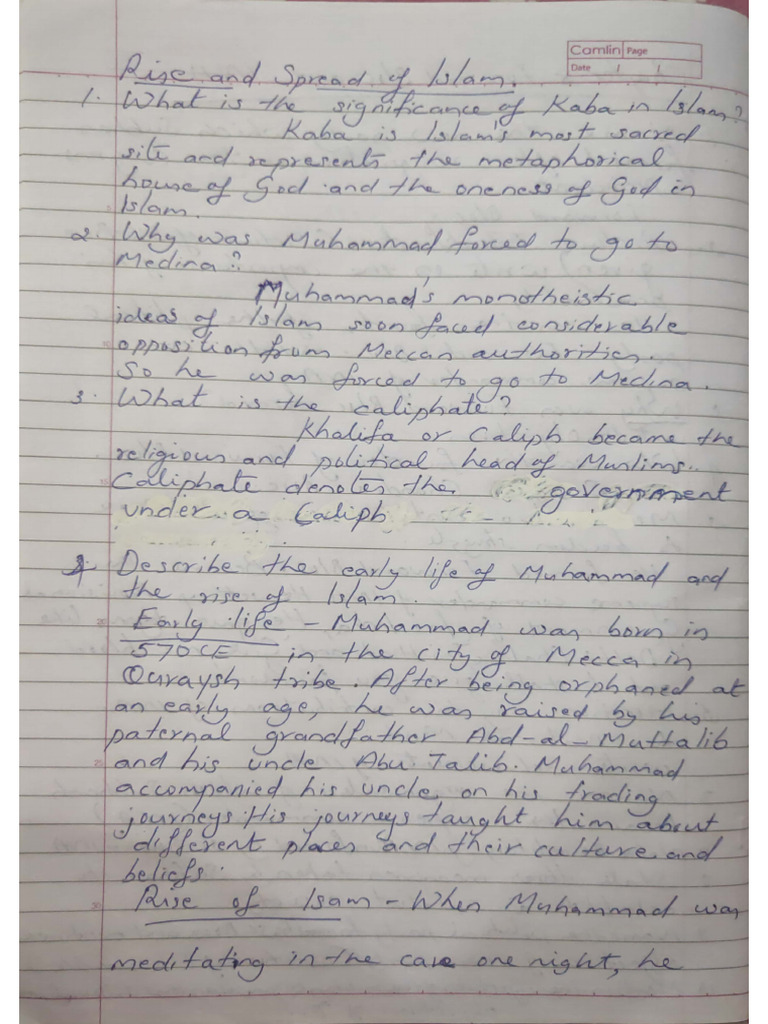 Camlin Page
Date / /
Rise and Spread of Islam.
1. What is the significance of Kaba in Islam?
Kaba is Islam's most sacred
site and represents the metaphorical
house of God and the oneness of God in
Islam.
2. Why was Muhammad forced to go to
Medina?
Muhammad's monotheistic
ideas of Islam soon faced considerable
opposition from Meccan authorities.
So he was forced to go to Medina.
3. What is the caliphate?
Khalifa or Caliph became the
religious and political head of Muslims.
Caliphate denotes the government
under a Caliph
4. Describe the early life of Muhammad and
the rise of Islam.
Early life - Muhammad was born in
570CE in the city of Mecca in
Quraysh tribe. After being orphaned at
an early age, he was raised by his
paternal grandfather Abd-al-Muttalib
and his uncle Abu Talib. Muhammad
accompanied his uncle on his trading
journeys. His journeys taught him about
different places and their culture and
beliefs.
Rise of Isam - When Muhammad was
meditating in the cave one night, he